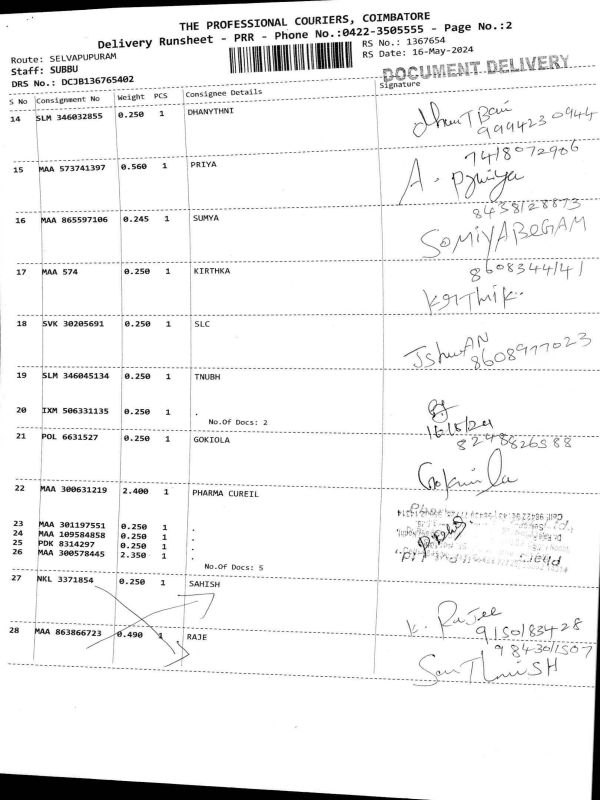 THE PROFESSIONAL COURIERS, COIMBATORE
Delivery Runsheet - PRR - Phone No.:0422-3505555 - Page No.:2
Route: SELVAPUPURAM
RS No.: 1367654
Staff: SUBBU
RS Date: 16-May-2024
DRS No.: DCJB136765402
DOCUMENT DELIVERY
S No Consignment No Weight PCS Consignee Details Signature
14 SLM 346032855 0.250 1 DHANYTHNI
9994230944
15 MAA 573741397 0.560 1 PRIYA
7418072906
A. Priya
16 MAA 865597106 0.245 1 SUMYA
8438128873
SOMIYABEGAM
17 MAA 574 0.250 1 KIRTHKA
8608344141
Karthik.
18 SVK 30205691 0.250 1 SLC
8608977023
19 SLM 346045134 0.250 1 TNUBH
20 IXM 506331135 0.250 1 .
No.Of Docs: 2
16/5/24
21 POL 6631527 0.250 1 GOKIOLA
8248826588
Gokila
22 MAA 300631219 2.400 1 PHARMA CUREIL
23 MAA 301197551 0.250 1 .
24 MAA 109584858 0.250 1 .
25 PDK 8314297 0.250 1 .
26 MAA 300578445 2.350 1 .
No.Of Docs: 5
27 NKL 3371854 0.250 1 SAHISH
K. Rajee
9150183428
28 MAA 863866723 0.490 1 RAJE
9843011507